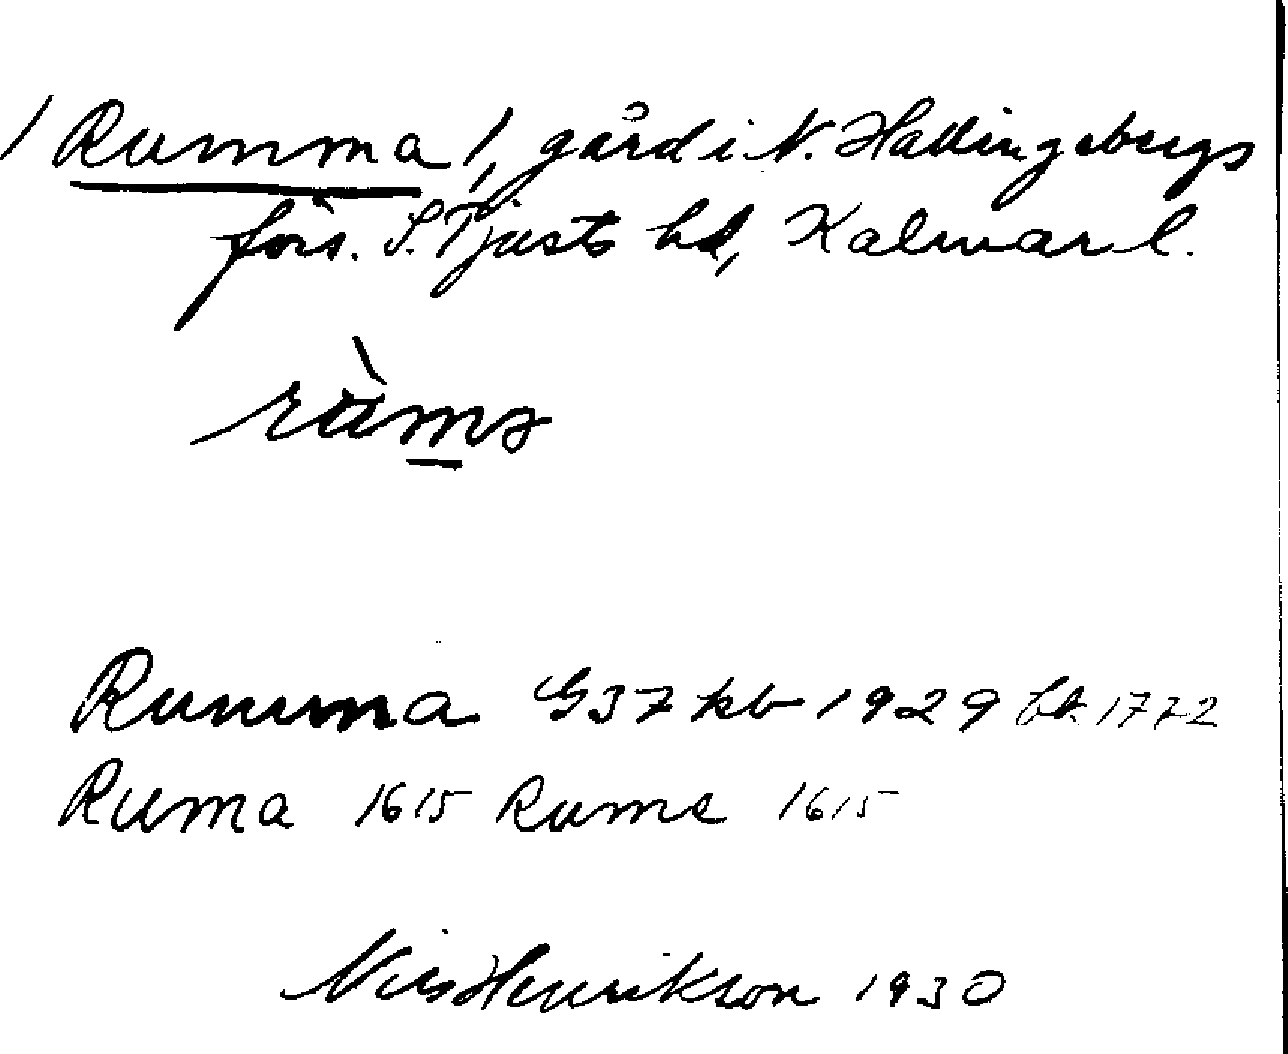 /Rumma/, gård i N. Hallingebergs
förs. S. Tjusts hd, Kalmar l.
rùmə
Rumma G37 kb 1929 hk 1772
Ruma 1615 Rume 1615
Nils Henrikson 1930